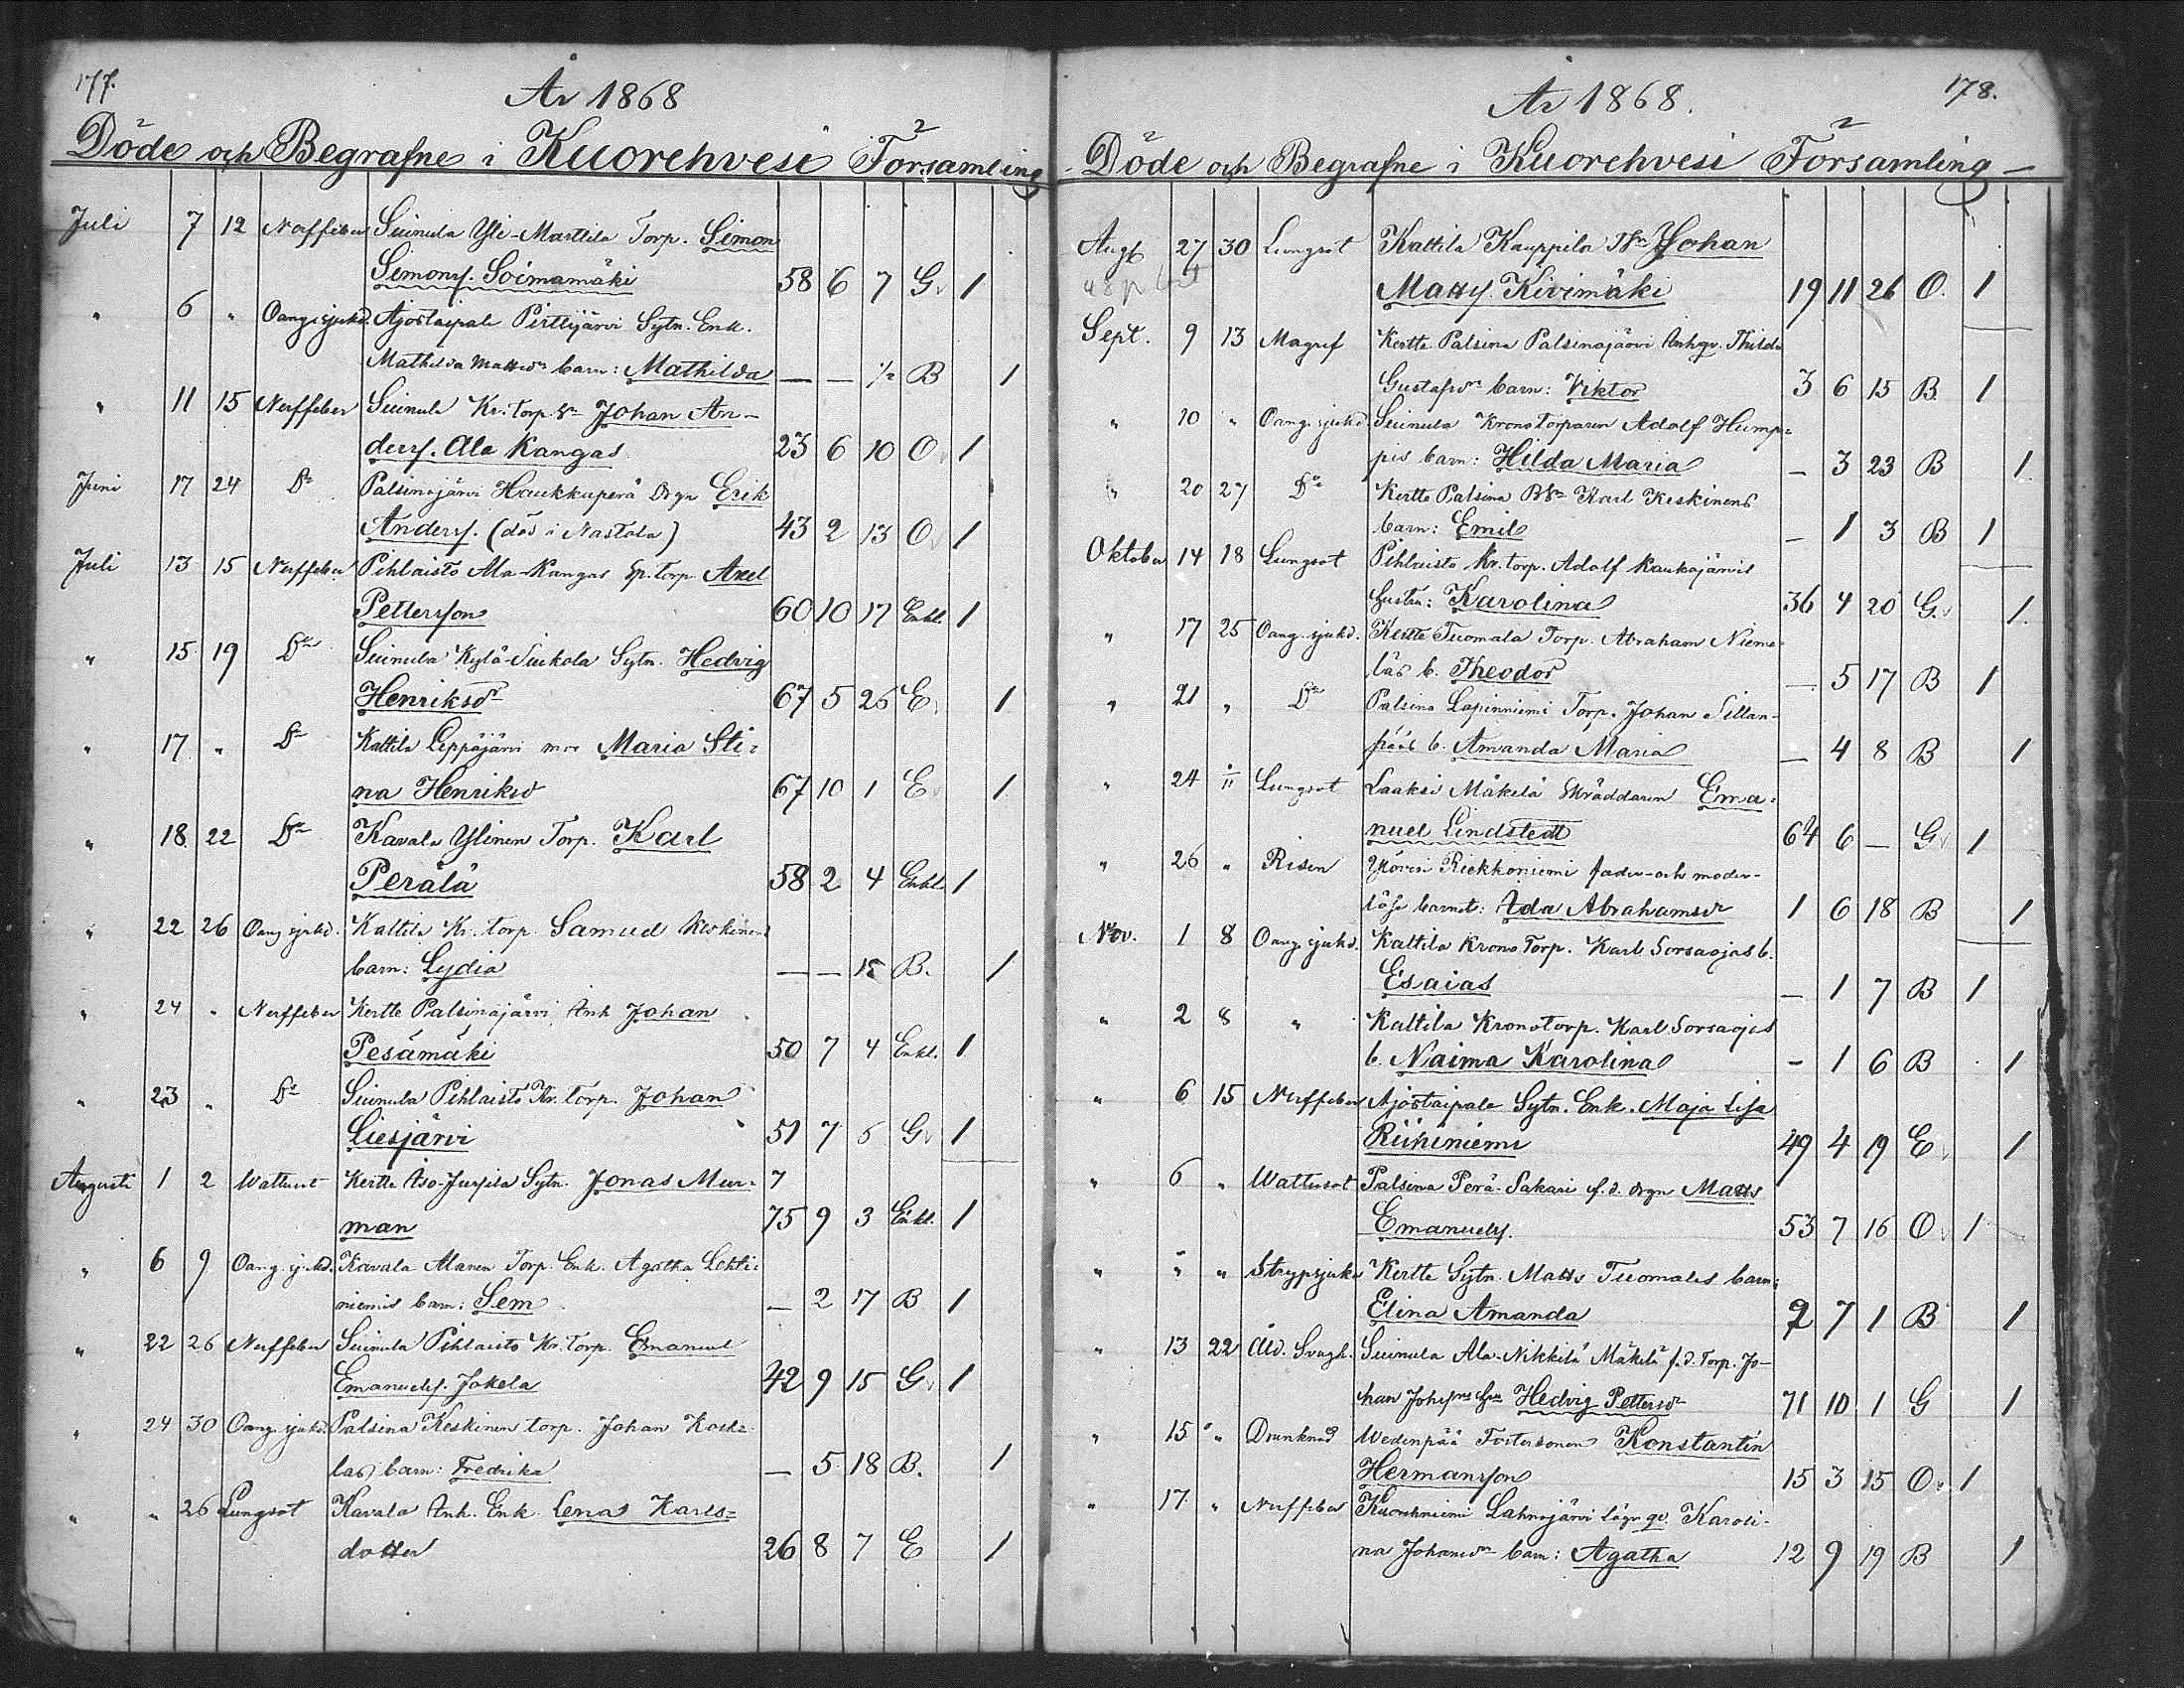 177.
År 1868
Döde och Begrafne i Kuorehvesi Församling
Juli 7 12 Nerffeber Suinula Yli-Marttila Torp. Simon
Simonss. Soimamäki 58 6 7 G 1
" 6 " Oang. sjukd. Ajostaipale Pirttijärvi Sytn. Enk.
Mathilda Mattsdr barn: Mathilda — — 1/2 B 1
" 11 15 Nerffeber Suinula Kr. Torp. Sn Johan An-
derss. Ala Kangas 23 6 10 O 1
Juni 17 24 Do Palsinajärvi Haukkaperä Drgn Erik
Anderss. (död i Nastola) 43 2 13 O 1
Juli 13 15 Nerffeber Pihlaisto Ala-Kangas Sp. torp. Axel
Pettersson 60 10 17 Enkl. 1
" 15 19 Do Suinula Kylä-Siukola Sytn. Hedvig
Henriksdr 67 5 26 E 1
" 17 " Do Kattila Leppäjärvi mor Maria Sti-
na Henriksd 67 10 1 E 1
" 18 22 Do Kavala Ylinen Torp. Karl
Perälä 58 2 4 Enkl. 1
" 22 26 Oang sjukd. Kattila Kr. torp. Samuel Keskinens
barn: Lydia — — 15 B. 1
" 24 " Nerffeber Kertte Palsinajärvi Inh Johan
Pesämäki 50 7 4 Enkl. 1
" 23 " Do Suinula Pihlaisto Kr. torp. Johan
Liesjärvi 51 7 5 G 1
Augusti 1 2 Wattusot Kertte Iso-Juspila Sytn. Jonas Mur- 7
man 75 9 3 Enkl. 1
" 6 9 Oang. sjukd. Kavala Alanen Torp. Enk. Agatha Lehti-
niemis barn: Sem — 2 17 B 1
" 22 26 Nerffeber Suinula Pihlaisto Kr. Torp. Emanuel
Emanuelss. Jokela 42 9 15 G 1
" 24 30 Oang. sjukd. Palsina Keskinen torp. Johan Koske-
las barn: Fredrika — 5 18 B. 1
" " 26 Lungsot Kavala Inh. Enk. Lena Karls-
dotter 26 8 7 E 1
178.
År 1868.
Döde och Begrafne i Kuorehvesi Församling
Augt 27 30 Lungsot Kattila Kauppila Sn Johan
Matss. Kivimäki 19 11 26 O. 1
Sept. 9 13 Magref Kertte Palsina Palsinajärvi Inhqv. Thilda
Gustafsdrs barn: Viktor 3 6 15 B. 1
" 10 " Oang. sjukd. Suinula Krono Torparen Adolf Hump-
pis barn: Hilda Maria — 3 23 B 1
" 20 27 Do Kertte Palsina Karl Keskinens
barn: Emil — 1 3 B 1
Oktober 14 18 Lungsot Pihlaisto Kr. torp. Adolf Kaukojärvis
hustru: Karolina 36 4 20 G. 1
" 17 25 Oang. sjukd. Kertte Tuomala Torp. Abraham Nieme-
läs b. Theodor — 5 17 B 1
" 21 " Do Palsina Lapinniemi Torp. Johan Sillan-
pääs b. Amanda Maria — 4 8 B 1
" 24 1/11 Lungsot Laaksi Mäkelä Skräddaren Ema-
nuel Lindstedt 64 6 — G 1
" 26 " Risen Riekkoniemi fader- och moder-
lösa barnet: Ida Abrahamsdr 1 6 18 B 1
Nov. 1 8 Oang. sjukd. Kattila Krono Torp. Karl Sorsaojas b.
Esaias — 1 7 B 1
" 2 8 " Kattila Kronotorp. Karl Sorsaojas
b. Naima Karolina — 1 6 B 1
" 6 15 Nerffeber Ajostaipale Sytn. Enk. Maja Lisa
Riihiniemi 49 4 19 E 1
" 6 " Wattusot Palsina Perä-Sakari f.d. Drgn Matts
Emanuelss. 53 7 16 O 1
" " " Strypsjuka Kertte Sytn. Matts Tuomalas barn:
Elina Amanda 2 7 1 B 1
" 13 22 Åld. Svagh. Suinula Ala-Nikkilä Mäkelä f.d. Torp. Jo-
han Johssons hu Hedvig Pettersdr 71 10 1 G 1
" 15 " Drunknad Wedenpää Fostersonen Konstantin
Hermansson 15 3 15 O 1
" 17 " Nerffeber Kuorehniemi Lahnajärvi Lösgn qv. Karoli-
na Johansdrs barn: Agatha 12 9 19 B 1